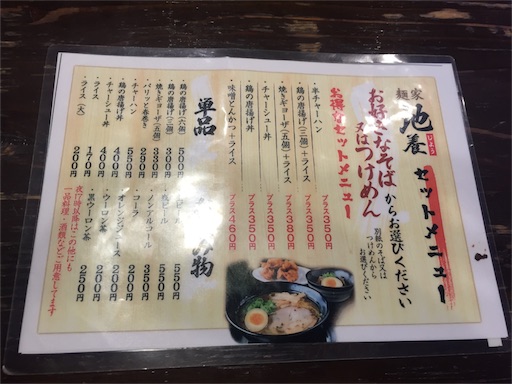 麺家 地養 セットメニュー
お好きなそば又はつけめんからお選びください
別紙のそば又はつけめんからお選びください
お得なセットメニュー
・半チャーハン プラス350円
・鶏の唐揚げ(三個)+ライス プラス350円
・焼きギョーザ(五個)+ライス プラス380円
・チャーシュー丼 プラス350円
・鶏の唐揚げ丼 プラス350円
・味噌とんかつ+ライス プラス460円
単品
・鶏の唐揚げ(六個) 500円
・鶏の唐揚げ(三個) 300円
・焼きギョーザ(五個) 330円
・パリッと春巻き 290円
・チャーハン 550円
・鶏の唐揚げ丼 400円
・チャーシュー丼 400円
・ライス 170円
・ライス(大) 200円
み物
ビール 550円
ビール 550円
・ノンアルコール 350円
・コーラ 200円
・オレンジジュース 200円
・ウーロン茶 200円
・黒ウーロン茶 250円
夜17時以降はこの他にも
一品料理・酒類などご用意してます